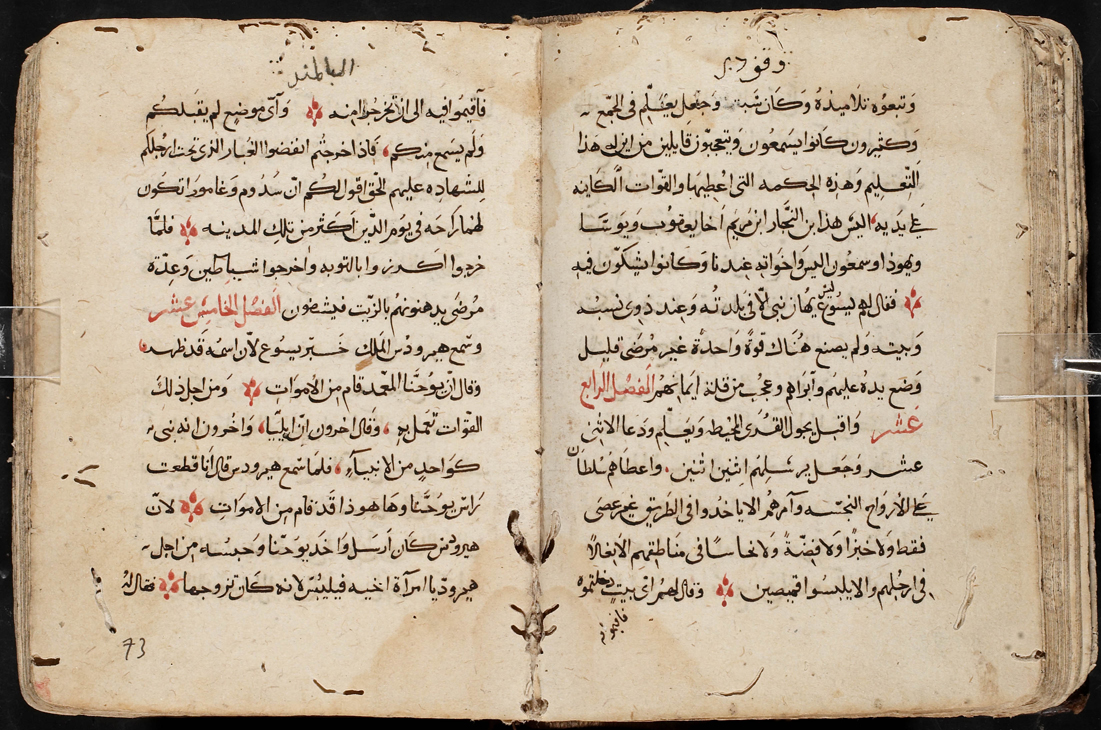 وقف دير
وتبعوه تلاميذه وكان سبت وجعل يعلّم في الجمع
وكثيرون كانوا يسمعون ويتعجبون قايلين من اين له هذا
التعليم وهذه الحكمه التي اعطيها والقوات الكاينه
علي يديه اليس هذا ابن النجار ابن مريم اخا يعقوب ويوسا
ويهوذا وسمعون اليس واخواته عندنا وكانوا يشكون فيه
فقال لهم يسوع ليس يهان نبي الا في بلدته وعند ذوي نسبه
وبيته ولم يصنع هناك قوة واحدة غير مرضي قليل
وضع يده عليهم وابراهم وعجب من قلة ايمانهم الفصل الرابع
عشر واقبل يجول القري المحيطه ويعلم ودعا الاثني
عشر وجعل يرسلهم اثنين اثنين واعطاهم سلطان
علي الارواح النجسه وامرهم الا ياخدوا في الطريق غير عصي
فقط ولا خبزا ولا فضة ولا نحاسا في مناطقهم الا نعالا
في ارجلهم والا يلبسوا قميصين وقال لهم اي بيت دخلتموه
فاقيموا فيه الي ان تخرجوا منه واي موضع لم يقبلكم
ولم يسمع منكم فاذا خرجتم انفضوا الغبار الذي تحت ارجلكم
للشهاده عليهم الحق اقول لكم ان سدوم وغامورا تكون
لهما راحه في يوم الدين اكثر من تلك المدينه فلما
خرجوا اكرزوا بالتوبه واخرجوا شياطين وعدة
مرضي يدهنونهم بالزيت فيشفون الفصل الخامس عشر
وسمع هيرودس الملك خبر يسوع لان اسمه قد ظهر
وقال ان يوحنا المعمد قام من الاموات ومن اجل ذلك
القوات تعمل به وقال اخرون ان ايليا واخرون انه نبي
كواحد من الانبياء فلما سمع هيرودس قال انا قطعت
راس يوحنا وها هوذا قد قام من الاموات لان
هيرودس كان ارسل واخد يوحنا وحبسه من اجل
هيروديا امراة اخيه فيلبس لانه كان تزوجها فقال له
73